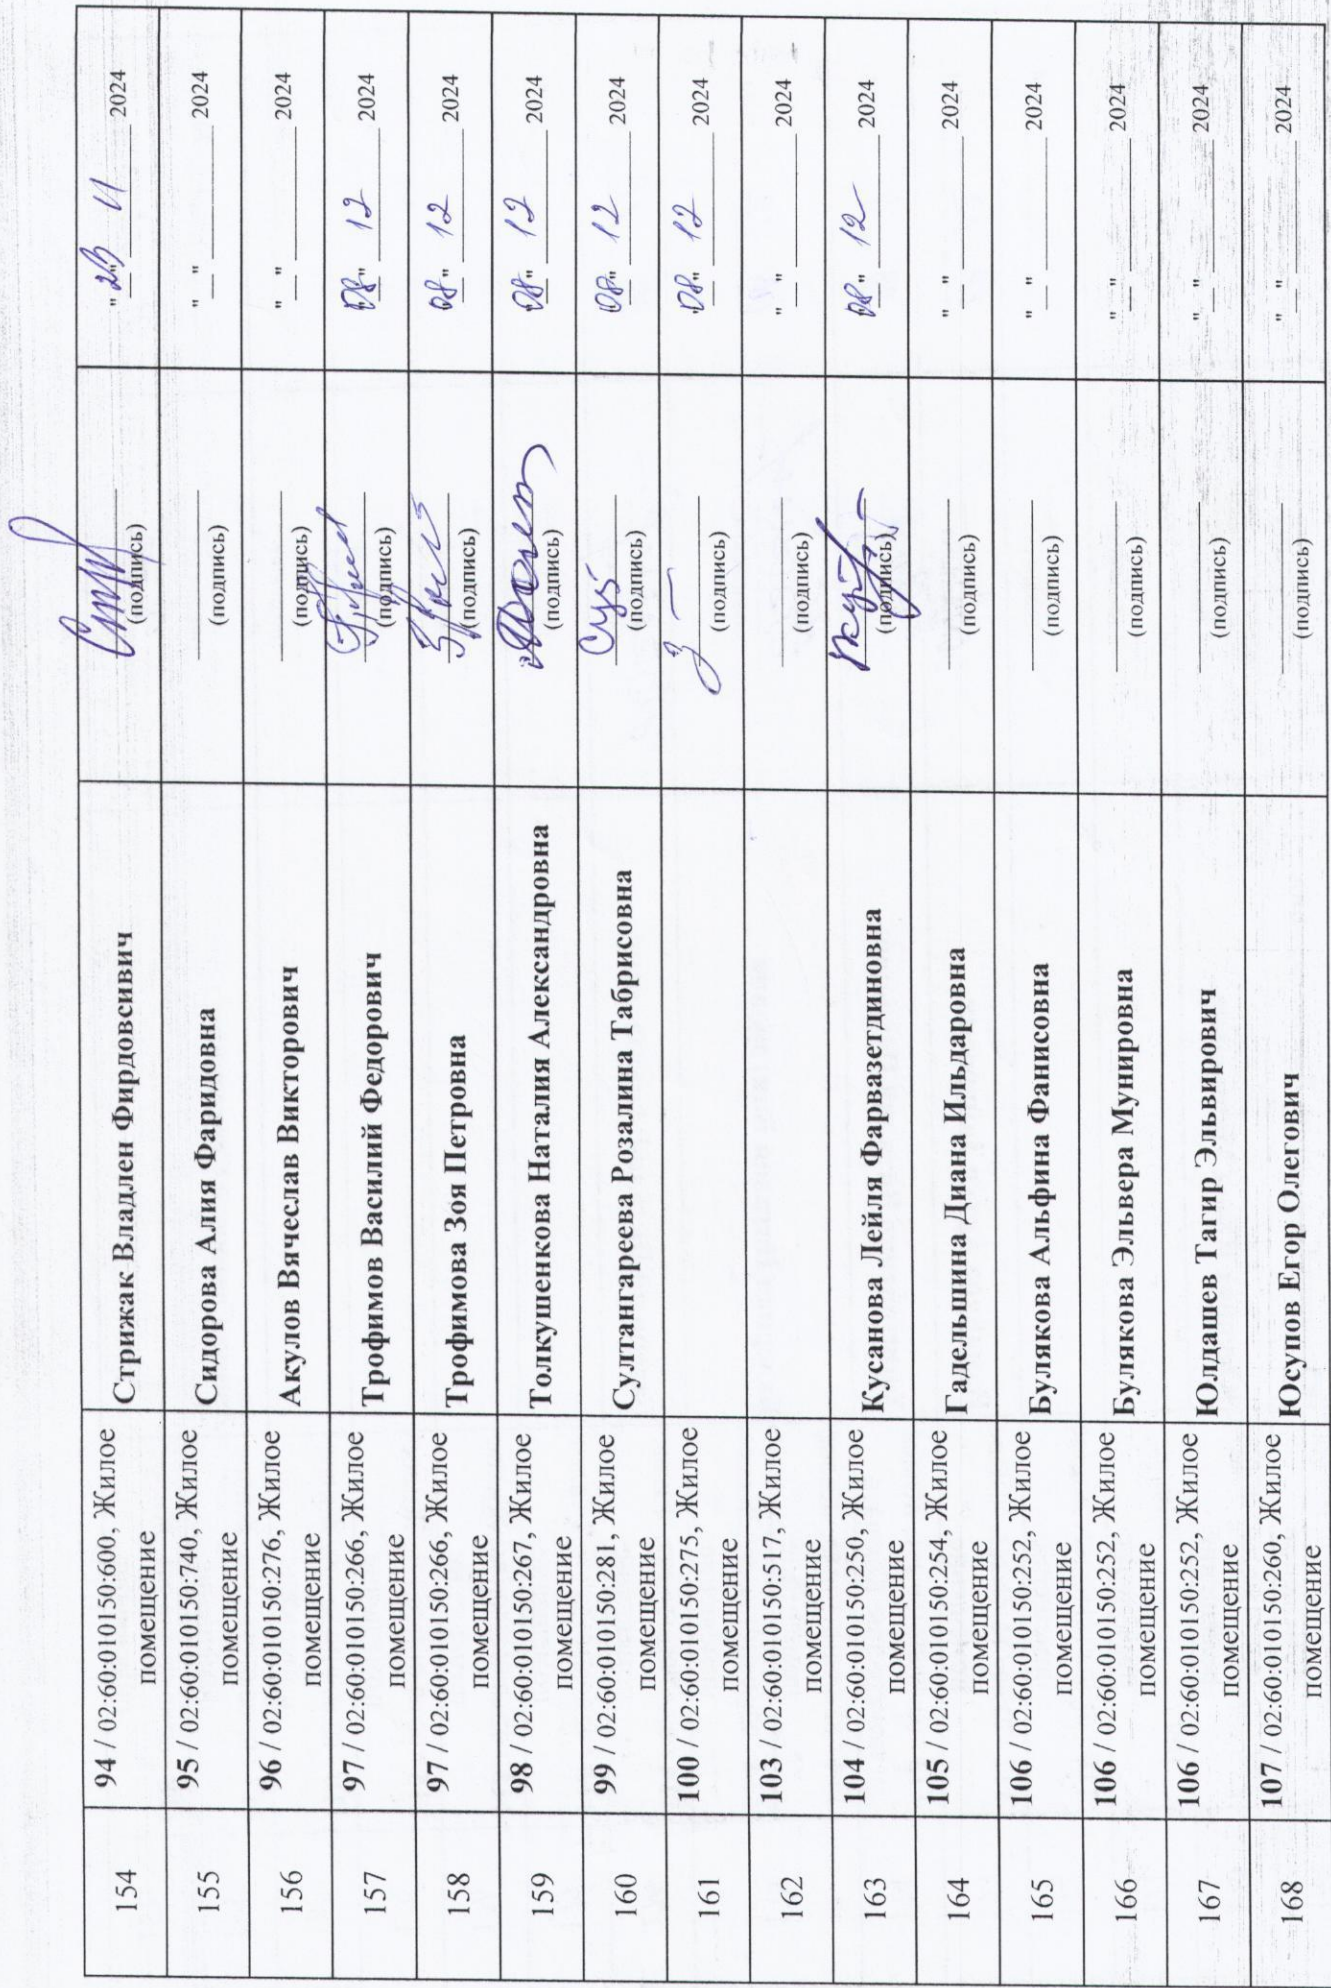 154 94 / 02:60:010150:600, Жилое помещение Стрижак Владлен Фирдовсивич (подпись) " 23 " 11 2024
155 95 / 02:60:010150:740, Жилое помещение Сидорова Алия Фаридовна (подпись) "__" 2024
156 96 / 02:60:010150:276, Жилое помещение Акулов Вячеслав Викторович (подпись) "__" 2024
157 97 / 02:60:010150:266, Жилое помещение Трофимов Василий Федорович (подпись) "08" 12 2024
158 97 / 02:60:010150:266, Жилое помещение Трофимова Зоя Петровна (подпись) "08" 12 2024
159 98 / 02:60:010150:267, Жилое помещение Толкушенкова Наталия Александровна (подпись) "08" 12 2024
160 99 / 02:60:010150:281, Жилое помещение Султангареева Розалина Табрисовна (подпись) "08" 12 2024
161 100 / 02:60:010150:275, Жилое помещение (подпись) "08" 12 2024
162 103 / 02:60:010150:517, Жилое помещение (подпись) "__" 2024
163 104 / 02:60:010150:250, Жилое помещение Кусанова Лейля Фарвазетдиновна (подпись) "08" 12 2024
164 105 / 02:60:010150:254, Жилое помещение Гадельшина Диана Ильдаровна (подпись) "__" 2024
165 106 / 02:60:010150:252, Жилое помещение Булякова Альфина Фанисовна (подпись) "__" 2024
166 106 / 02:60:010150:252, Жилое помещение Булякова Эльвера Мунировна (подпись) "__" 2024
167 106 / 02:60:010150:252, Жилое помещение Юлдашев Тагир Эльвирович (подпись) "__" 2024
168 107 / 02:60:010150:260, Жилое помещение Юсупов Егор Олегович (подпись) "__" 2024